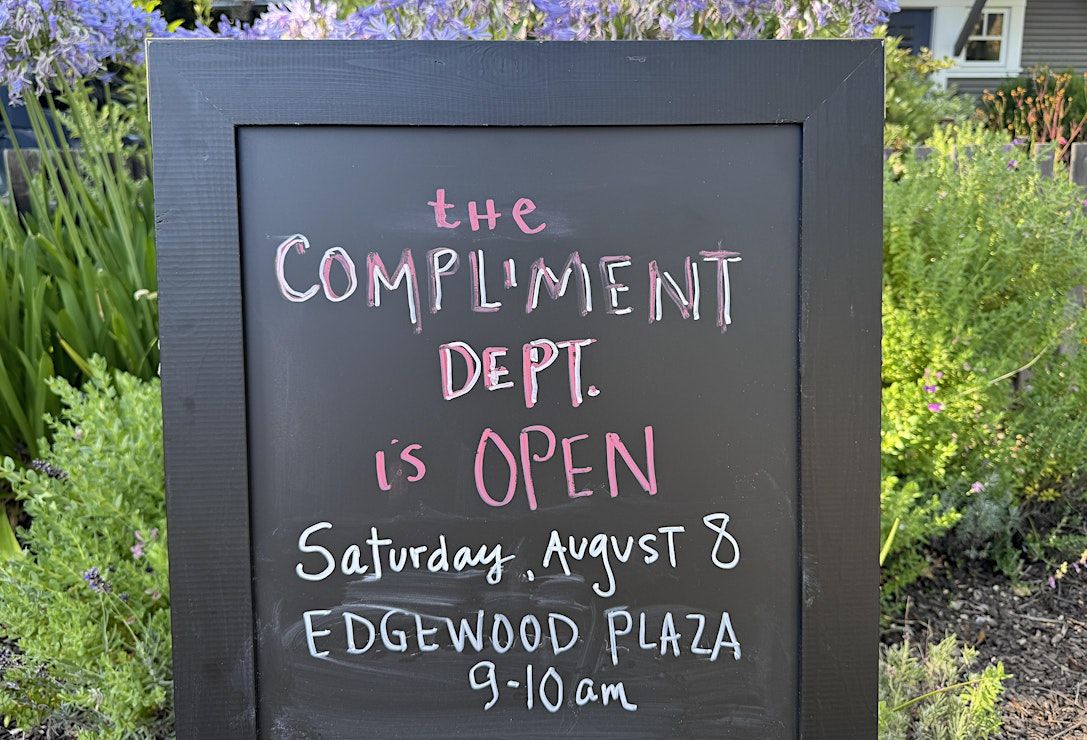 the
COMPLIMENT
DEPT.
is OPEN
Saturday, August 8
EDGEWOOD PLAZA
9-10am